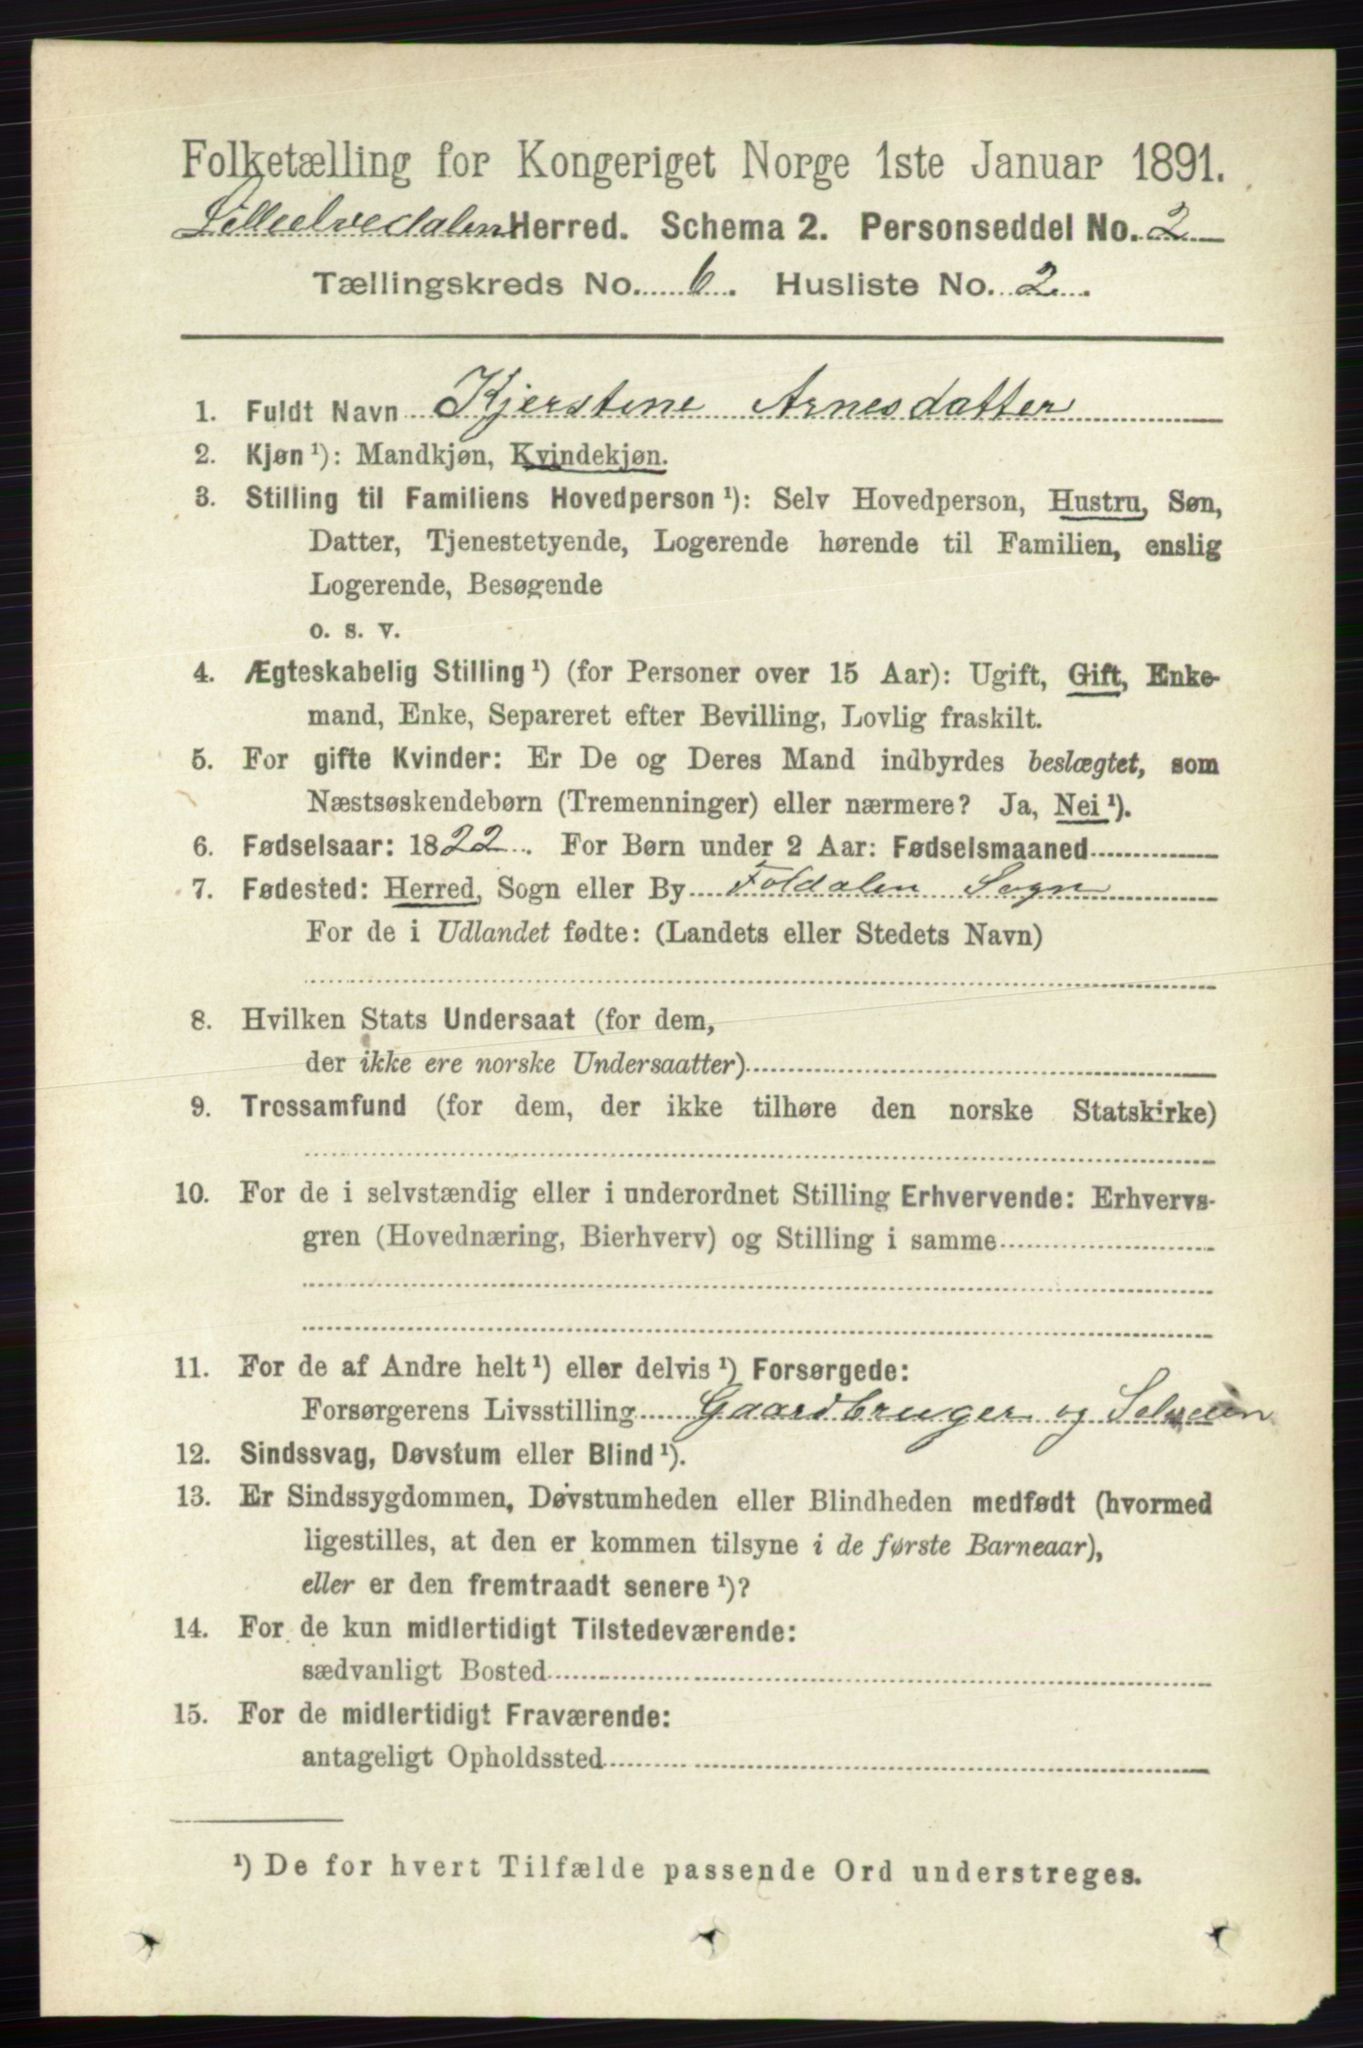 Folketælling for Kongeriget Norge 1ste Januar 1891.
Lilleelvedalen Herred. Schema 2. Personseddel No. 2
Tællingskreds No. 6. Husliste No. 2.
1. Fuldt Navn Kjerstine Arnesdatter
2. Kjøn¹): Mandkjøn, Kvindekjøn.
3. Stilling til Familiens Hovedperson¹): Selv Hovedperson, Hustru, Søn,
Datter, Tjenestetyende, Logerende hørende til Familien, enslig
Logerende, Besøgende
o. s. v.
4. Ægteskabelig Stilling¹) (for Personer over 15 Aar): Ugift, Gift, Enke-
mand, Enke, Separeret efter Bevilling, Lovlig fraskilt.
5. For gifte Kvinder: Er De og Deres Mand indbyrdes beslægtet, som
Næstsøskendebørn (Tremenninger) eller nærmere? Ja, Nei¹).
6. Fødselsaar: 1822. For Børn under 2 Aar: Fødselsmaaned
7. Fødested: Herred, Sogn eller By Foldalen Sogn
For de i Udlandet fødte: (Landets eller Stedets Navn)
8. Hvilken Stats Undersaat (for dem,
der ikke ere norske Undersaatter)
9. Trossamfund (for dem, der ikke tilhøre den norske Statskirke)
10. For de i selvstændig eller i underordnet Stilling Erhvervende: Erhvervs-
gren (Hovednæring, Bierhverv) og Stilling i samme
11. For de af Andre helt¹) eller delvis¹) Forsørgede:
Forsørgerens Livsstilling Gaardbruger og Selveien
12. Sindssvag, Døvstum eller Blind¹).
13. Er Sindssygdommen, Døvstumheden eller Blindheden medfødt (hvormed
ligestilles, at den er kommen tilsyne i de første Barneaar),
eller er den fremtraadt senere¹)?
14. For de kun midlertidigt Tilstedeværende:
sædvanligt Bosted
15. For de midlertidigt Fraværende:
antageligt Opholdssted
¹) De for hvert Tilfælde passende Ord understreges.